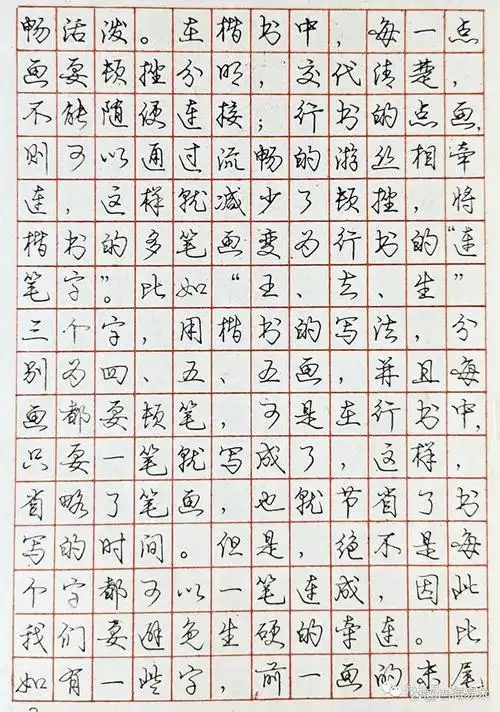 畅活泼。在楷书中，每一点
画要顿挫分明，交代清楚，
不能随便连接；行书的点画，
则可以通过流畅的游丝相牵
连，这样就减少了顿挫，将
楷书的多笔画变为行书的“连
笔字”。比如“王、去、生”
三个字，用楷书的写法，分
别为四、五、五画，并且每
画都要顿笔，可是在行书中，
只要一笔就写成了，这样，
省略了笔画，也就节省了书
写的时间。但是，绝不是每
个字都可以一笔连成，因此
我们要避免生硬的牵连。比
如有一些字，前一画的末尾，